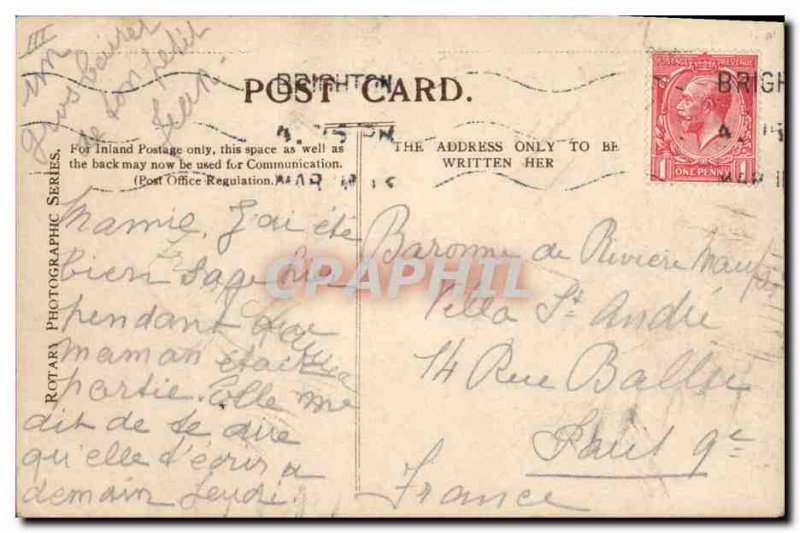 III
un
gros baiser
de ton petit
Jean
POST CARD.
BRIGHTON
For Inland Postage only, this space as well as
the back may now be used for Communication.
(Post Office Regulation.)
THE ADDRESS ONLY TO BE
WRITTEN HER
POSTAGE REVENUE
ONE PENNY
BRIGH
ROTARY PHOTOGRAPHIC SERIES.
Mamie, J'ai été
bien sage hier
pendant que
maman était
partie. Elle me
dit de te dire
qu'elle t'écrira
demain Jeudi.
Baronne de Rivière
Villa St. André
14 Rue Ballu
Paris 9e
France
CPAPHIL